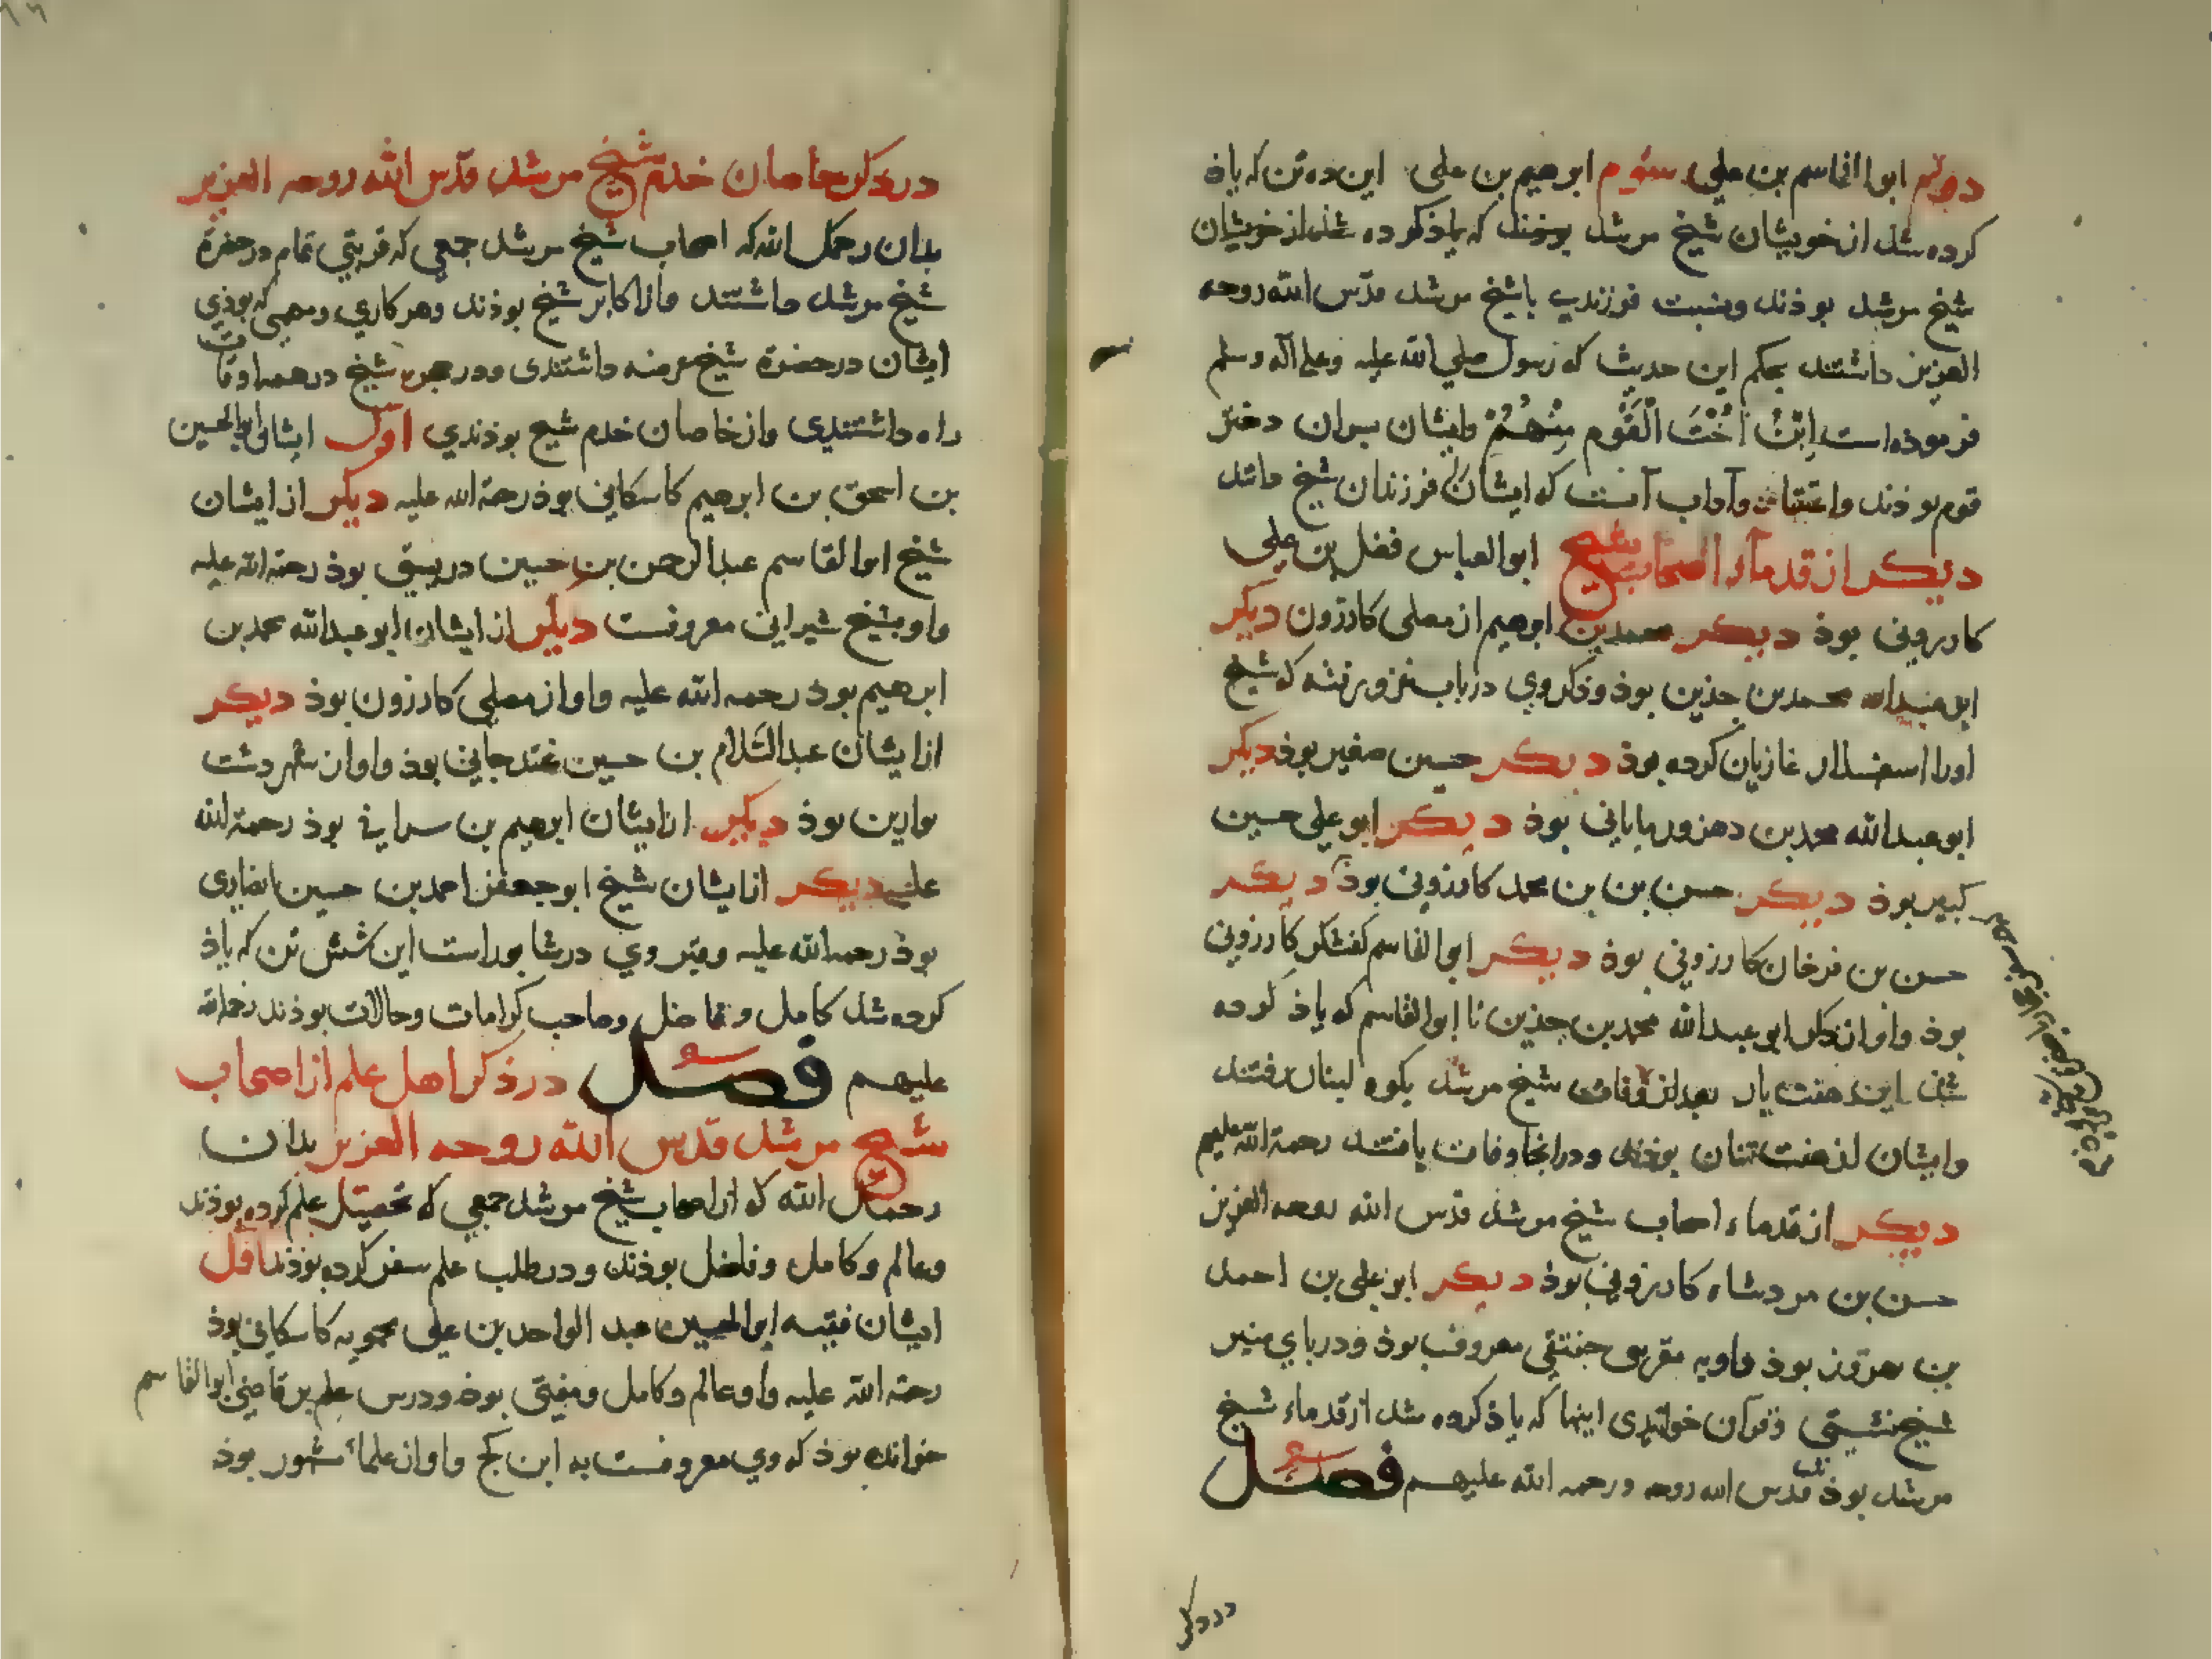 دوم ابوالقاسم بن علی سوم ابرهیم بن علی این ده تن که یاذ
کرده شد از خویشان شیخ مرشد بوذند که یاذ کرده شد از خویشان
شیخ مرشد بوذند ونسبت فرزندی باشیخ مرشد قدّس الله روحه
العزیز داشتند بحکم این حدیث که رسول صلی الله علیه وعلی آله وسلم
فرموذه است اِبْنُ اُخْتَ الْقَوْمِ مِنْهُمْ وایشان پسران دختر
قوم بوذند واعتقاد وآداب آنست که ایشان فرزندان شیخ
دیکر از قدماء اصحاب شیخ ابوالعباس فضل بن علی
کازرونی بوذ دیکر محمد بن ابرهیم از معلی کازرون دیکر
ابو عبدالله محمد بن جذین بوذ وذکر وی در باب غزو رفته که شیخ
اورا اسفهسالار غازیان کرده بوذ دیکر حسین صغیر بوذ دیکر
ابو عبدالله محمد بن بوذ دیکر ابو علی حسین
کبیر بوذ دیکر حسن بن بن محمد کازرونی بوذ دیکر
حسن بن فرخان کازرونی بوذ دیکر ابوالقاسم کفشکر کازرونی
بوذ واو از ذکر ابو عبدالله محمد بن جذین تا ابوالقاسم که یاذ کرده
شد این هفت یار بعد از وفات شیخ مرشد بکوه لبنان رفتند
وایشان از هفت تنان بوذند ودر انجا وفات یافتند رحمة الله علیهم
دیکر از قدماء اصحاب شیخ مرشد قدس الله روحه العزیز
حسن بن مردشاه کازرونی بوذ دیکر ابو علی بن احمد
بن بوذ واو به مقری معروف بوذ ودر پای منبر
شیخ نشستی وقرآن خواندی اینها که یاذ کرده شد از قدماء شیخ
مرشد بوذند قدس الله روحه ورحمه الله علیهم فصل
در ذکر
در ذکر خاصان خدم شیخ مرشد قدّس الله روحه العزیز
بدان رحمک الله که اصحاب شیخ مرشد جمعی که قربتی تمام در حضرة
شیخ مرشد داشتند واز اکابر شیخ بوذند وهر کاری ومهمی که بوذی
ایشان در حضرة شیخ عرضه داشتندی ودر شیخ در همه اوقات
راه داشتندی واز خاصان خدم شیخ بوذندی اول ایشان ابوالحسین
بن اسحق بن ابرهیم کاسکانی بوذ رحمة الله علیه دیکر از ایشان
شیخ ابوالقاسم عبدالرحمن بن حسین دریستی بوذ رحمة الله علیه
واو بشیخ شیرازی معروفست دیکر از ایشان ابو عبدالله محمد بن
ابرهیم بوذ رحمه الله علیه واو از معلی کازرون بوذ دیکر
از ایشان عبدالسّلام بن حسین غندجانی بوذ واو از شهر دشت
بارین بوذ دیکر از ایشان ابرهیم بن بوذ رحمة الله
علیه دیکر از ایشان شیخ ابو جعفر احمد بن حسین انصاری
بوذ رحمه الله علیه وقبر وی در شابور است این شش تن که یاذ
کرده شد کامل وفاضل وصاحب کرامات وحالات بوذند رحمة الله
علیهم فصل در ذکر اهل علم از اصحاب
شیخ مرشد قدس الله روحه العزیز بدان
رحمک الله که از اصحاب شیخ مرشد جمعی که تحصیل علم کرده بوذند
وعالم وکامل وفاضل بوذند ودر طلب علم سفر کرده بوذند اول
ایشان فقیه ابوالحسین عبد الواحد بن علی کاسکانی بوذ
رحمة الله علیه واو عالم وکامل ومفتی بوذ ودرس علم بر قاضی ابوالقاسم
خوانده بوذ که وی معروفست به ابن کج واو از علماء بوذ